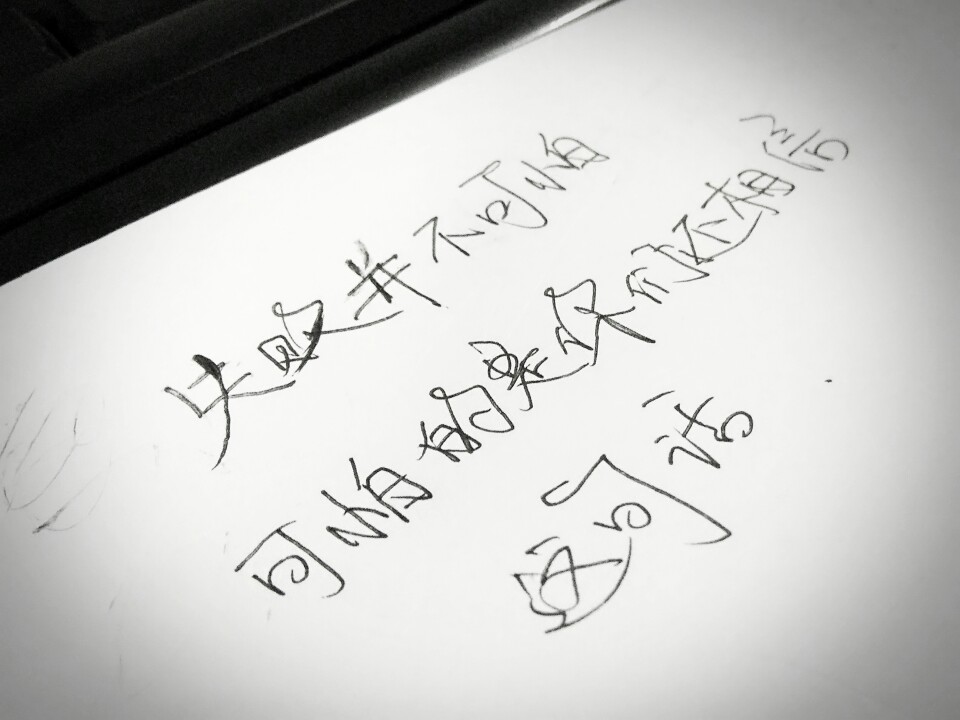 失败并不可怕
可怕的是你们还相信
这句话